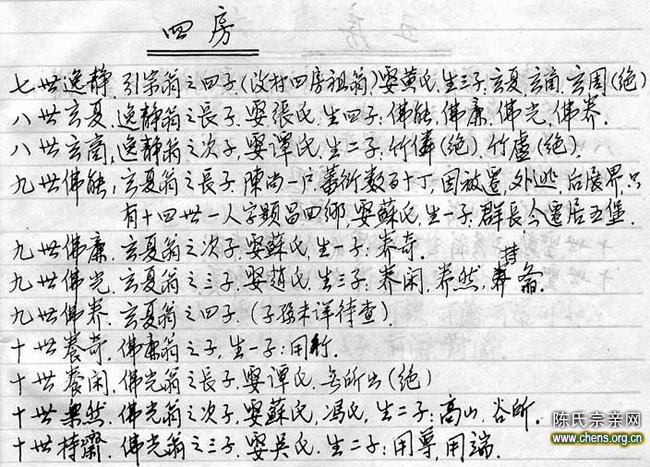 四房
七世逸静,引宗翁之四子(汶村四房祖翁)娶黄氏,生三子:玄夏,玄商,玄周(绝)
八世玄夏,逸静翁之長子,娶張氏,生四子,佛能,佛廉,佛光,佛养.
八世玄商,逸静翁之次子,娶谭氏,生二子:竹僯(绝),竹虚(绝).
九世佛能,玄夏翁之長子,陳尚一户蕃衍数百十丁,因放置,外逃,后展界只
有十四世一人字顕昌四鄉,娶蘇氏,生一子:群長今遷居五堡.
九世佛廉,玄夏翁之次子,娶蘇氏,生一子:养奇.
九世佛光,玄夏翁之三子,娶趙氏,生三子:养闲,养然,持斋
九世佛养,玄夏翁之四子,(子孫未详待查).
十世養奇,佛廉翁之子,生一子:用行.
十世養闲,佛光翁之長子,娶谭氏,無所出(绝)
十世果然,佛光翁之次子,娶蘇氏,冯氏,生二子:高山,谷所.
十世持齋,佛光翁之三子,娶吴氏,生二子:用尊,用端.
陈氏宗亲网
www.chens.org.cn